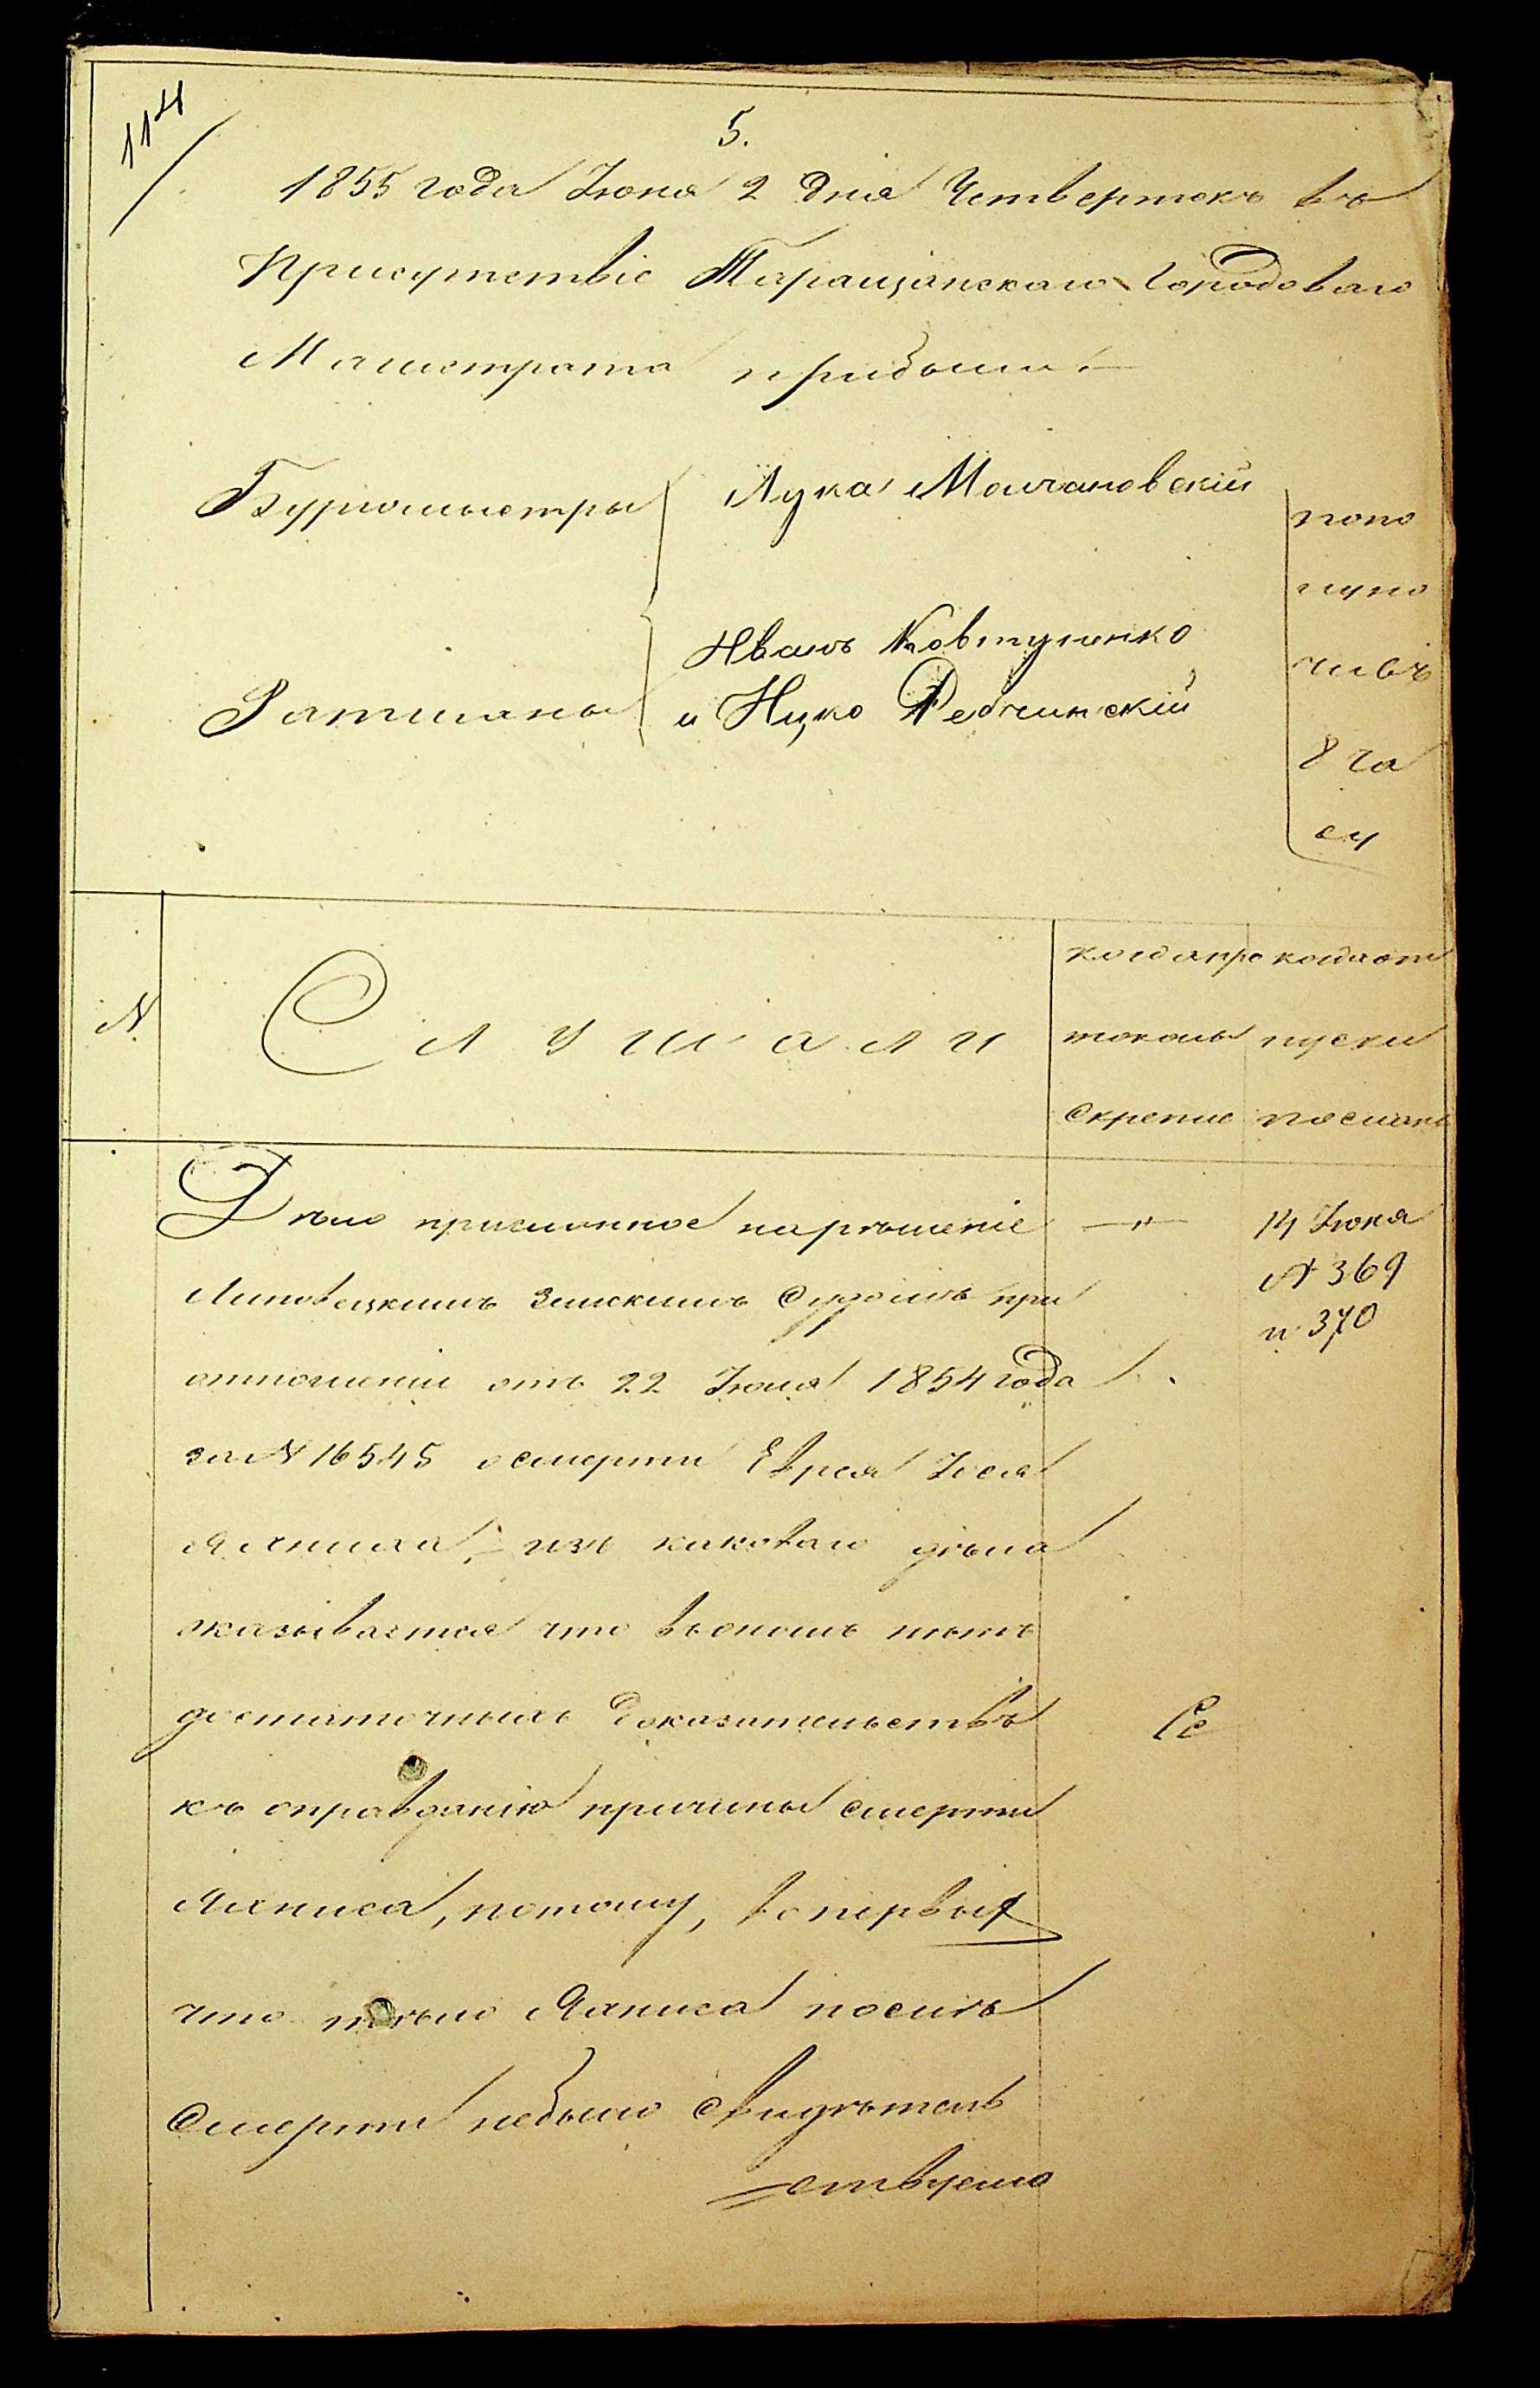 114
5.
1855 года Іюня 2 дня Четвертокъ въ
Присутствіе Таращанскаго Городоваго
Магистрата прибыли:
Бургомыстры
Лука Молчановскій
Ратманы
Иванъ Ковтуненко
и Ицко Ребчинскій
попо
луно
чивъ
8 ча
су
N
Слушали
когда про
токолъ
скрепле
когда от
пуски
посланы
Дѣло присланное нарѣшеніе
Липовецкимъ Земскимъ Судомъ при
отношеніи отъ 22 Іюля 1854 года
за N 16545 о смерти Еврея Іося
Яхниса, изъ каковаго дѣла
оказывается что въ ономъ нѣтъ
достаточныхъ доказательствъ
къ оправданію причины смерти
Яхниса, потому, во первых
что тѣло Яхниса послѣ
смерти небыло свидѣтель
ствуемо
—"—
14 Іюня
N 369
и 370